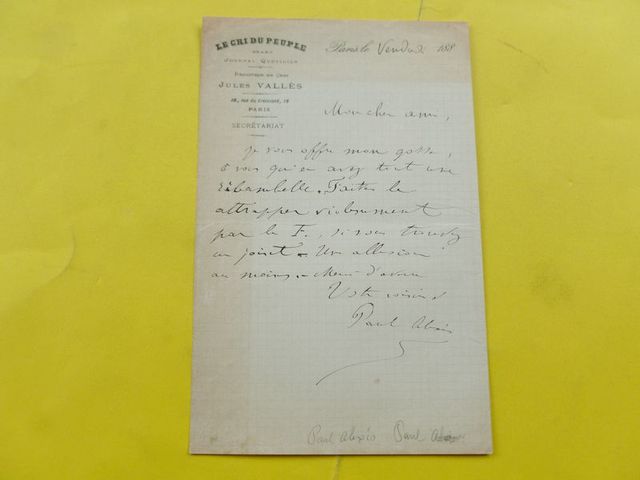 LE CRI DU PEUPLE
GRAND
JOURNAL QUOTIDIEN
RÉDACTEUR EN CHEF
JULES VALLÈS
16, rue du Croissant, 16
PARIS
SECRÉTARIAT
Paris le Vendredi 188
Mon cher ami,
Je vous offre mon gosse,
à vous qui en avez tout une
ribambelle. Faites le
attrapper violemment
par le F., si vous trouvez
un joint. Une allusion
au moins. Merci d'avance
Votre voisin
Paul Alexis
Paul Alexis Paul